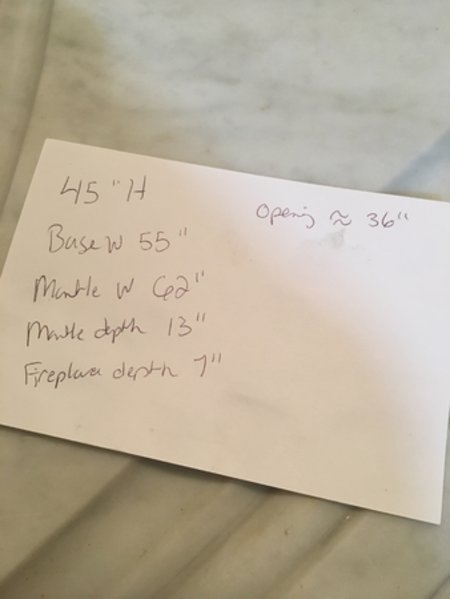 45" H
Opening ≈ 36"
Base W 55"
Mantle W 62"
Mantle depth 13"
Fireplace depth 7"